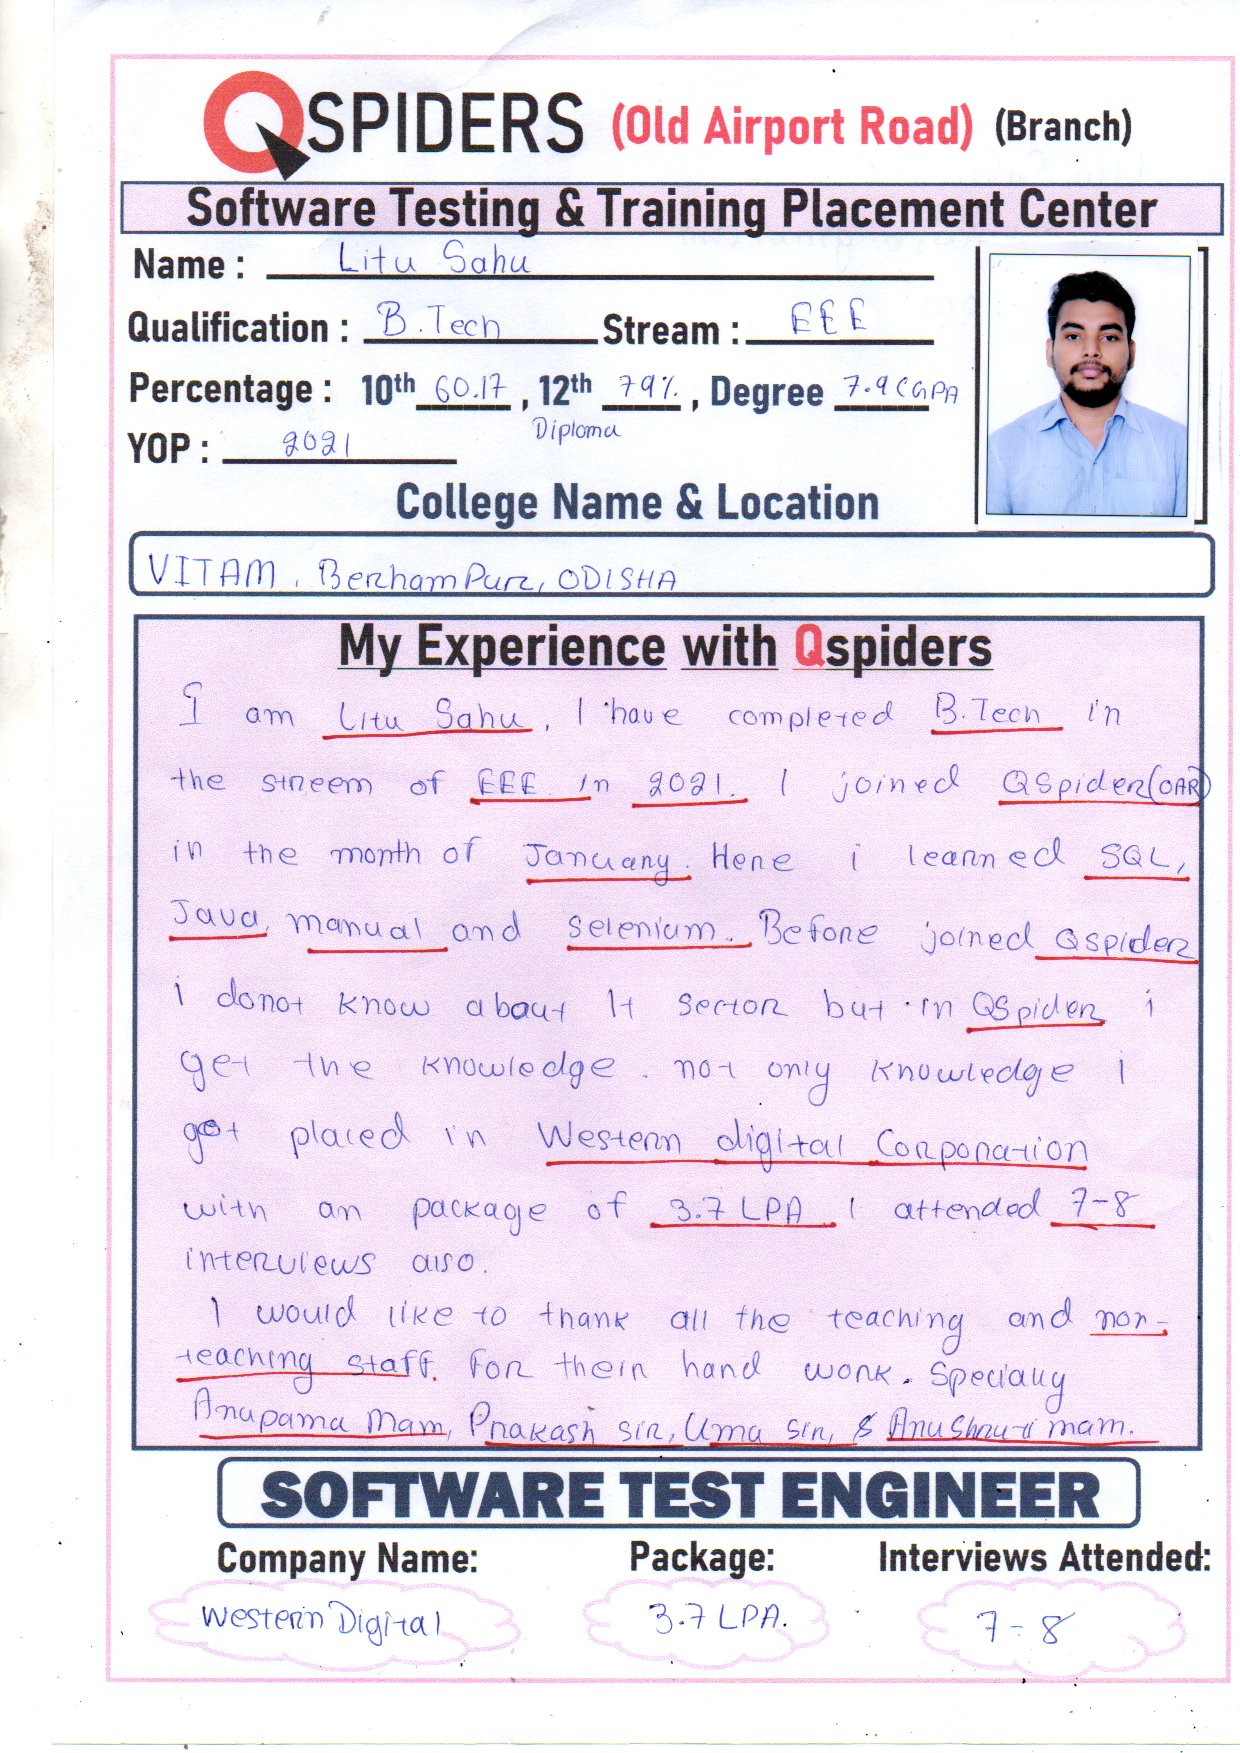 QSPIDERS (Old Airport Road) (Branch)
Software Testing & Training Placement Center
Name : Litu Sahu
Qualification : B.Tech Stream : EEE
Percentage : 10th 60.17, 12th 79%, Degree 7.9 CGPA
Diploma
YOP : 2021
College Name & Location
VITAM, Berhampur, ODISHA
My Experience with Qspiders
I am Litu Sahu, I have completed B.Tech in
the streem of EEE in 2021. I joined QSpider(OAR)
in the month of January. Here i learned SQL,
Java, manual and Selenium. Before joined Qspider
i donot know about It sector but in QSpider i
get the knowledge. not only knowledge i
got placed in Western digital Corporation
with an package of 3.7 LPA I attended 7-8
interviews also.
I would like to thank all the teaching and non-
teaching staff. For their hard work. Specialy
Anupama Mam, Prakash sir, Uma sir, & Anushruti mam.
SOFTWARE TEST ENGINEER
Company Name: Package: Interviews Attended:
Western Digital 3.7 LPA. 7-8